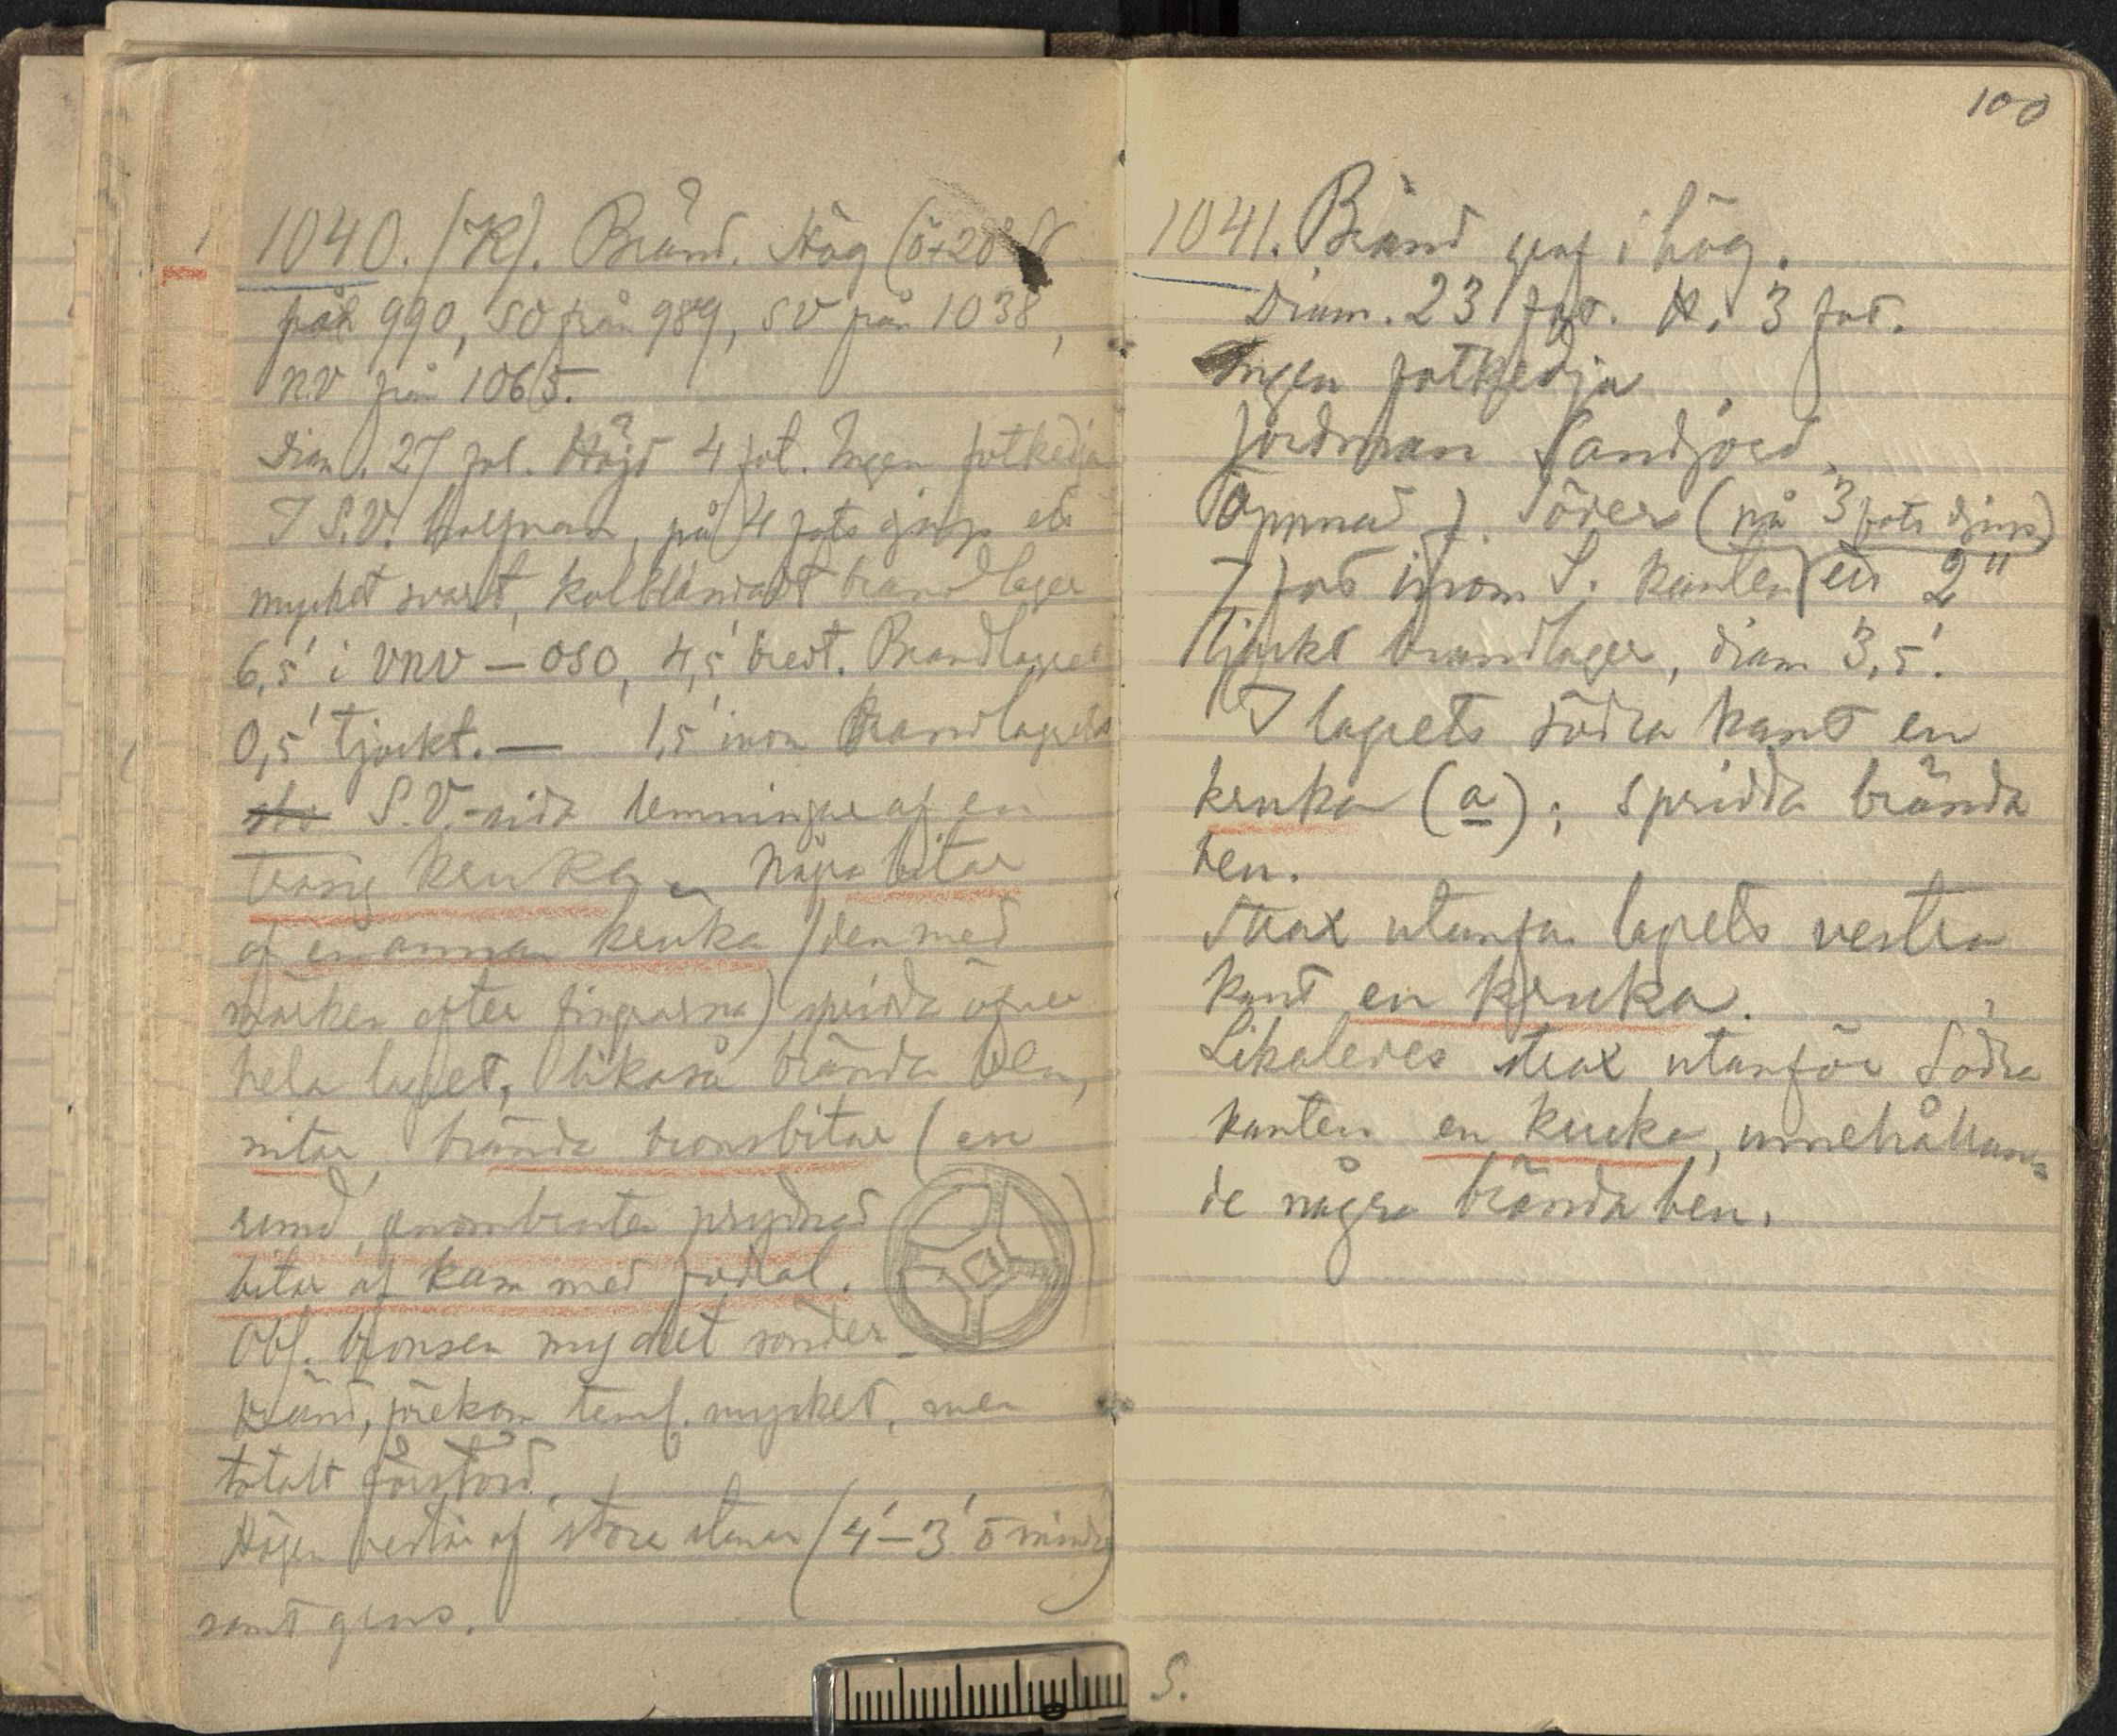 1040. (K). Bränd. Hög (ö+20°S
från 990, SO från 989, SV från 1038,
NV från 1065.
Diam. 27 fot. Höjd 4 fot. Ingen fotkedja
I S.V. halfvan, på 4 fots djup ett
mycket svart, kolblandadt brandlager
6,5' i VNV – OSO, 4,5' bredt. Brandlagret
0,5' tjockt. — 1,5' inom brandlagrets
S.V.-sida lemningar af en
trasig kruka, några bitar
af en annan kruka (den med
märken efter fingrarna) spridda öfver
hela lagret, likaså brända ben,
nitar, brända bronsbitar (en
rund, genombruten prydnad
bitar af kam med fodral.
Obs. bronsen mycket sönder-
bränd, förekom teml. mycket, men
totalt förstörd.
Högen består af stora stenar (4'–3' o mindre)
samt grus.
100
1041. Bränd graf i hög.
Diam. 23 fot. H. 3 fot.
Ingen fotkedja
Jordmån Sandjord.
Öppnad f. Söder (på 3 fots djup)
7 fot inom S. kanten ett 2"
tjockt brandlager, diam 3,5'.
I lagrets södra kant en
kruka (a); spridda brända
ben.
Strax utanför lagrets vestra
kant en kruka.
Likaledes strax utanför södra
kanten en kruka, innehållan=
de några brända ben.
S.